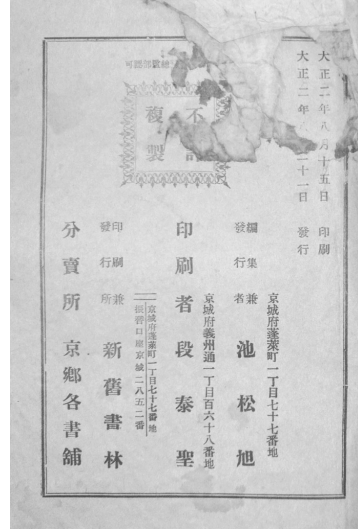 大正二年八月十五日 印刷
大正二年 二十一日 發行
不許
複製
京城府蓬萊町一丁目七十七番地
編集兼
發行者 池松旭
京城府義州通一丁目百六十八番地
印刷者 段泰聖
京城府蓬萊町一丁目七十七番地
振替口座京城二八五二番
印刷兼
發行所 新舊書林
分賣所 京鄕各書舖